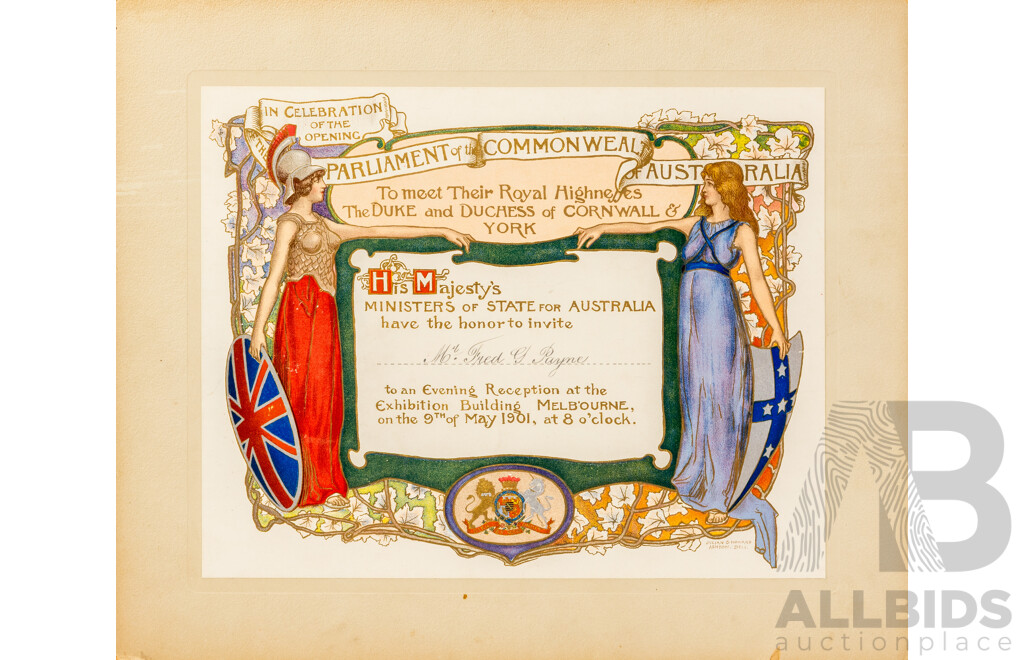 IN CELEBRATION
OF THE
OPENING
OF THE
PARLIAMENT of the COMMONWEALTH
OF AUSTRALIA
To meet Their Royal Highnesses
The DUKE and DUCHESS of CORNWALL &
YORK
His Majesty's
MINISTERS OF STATE FOR AUSTRALIA
have the honor to invite
Mr. Fred G Payne
to an Evening Reception at the
Exhibition Building, MELBOURNE,
on the 9TH of May 1901, at 8 o'clock.
AB
ALLBIDS
auctionplace